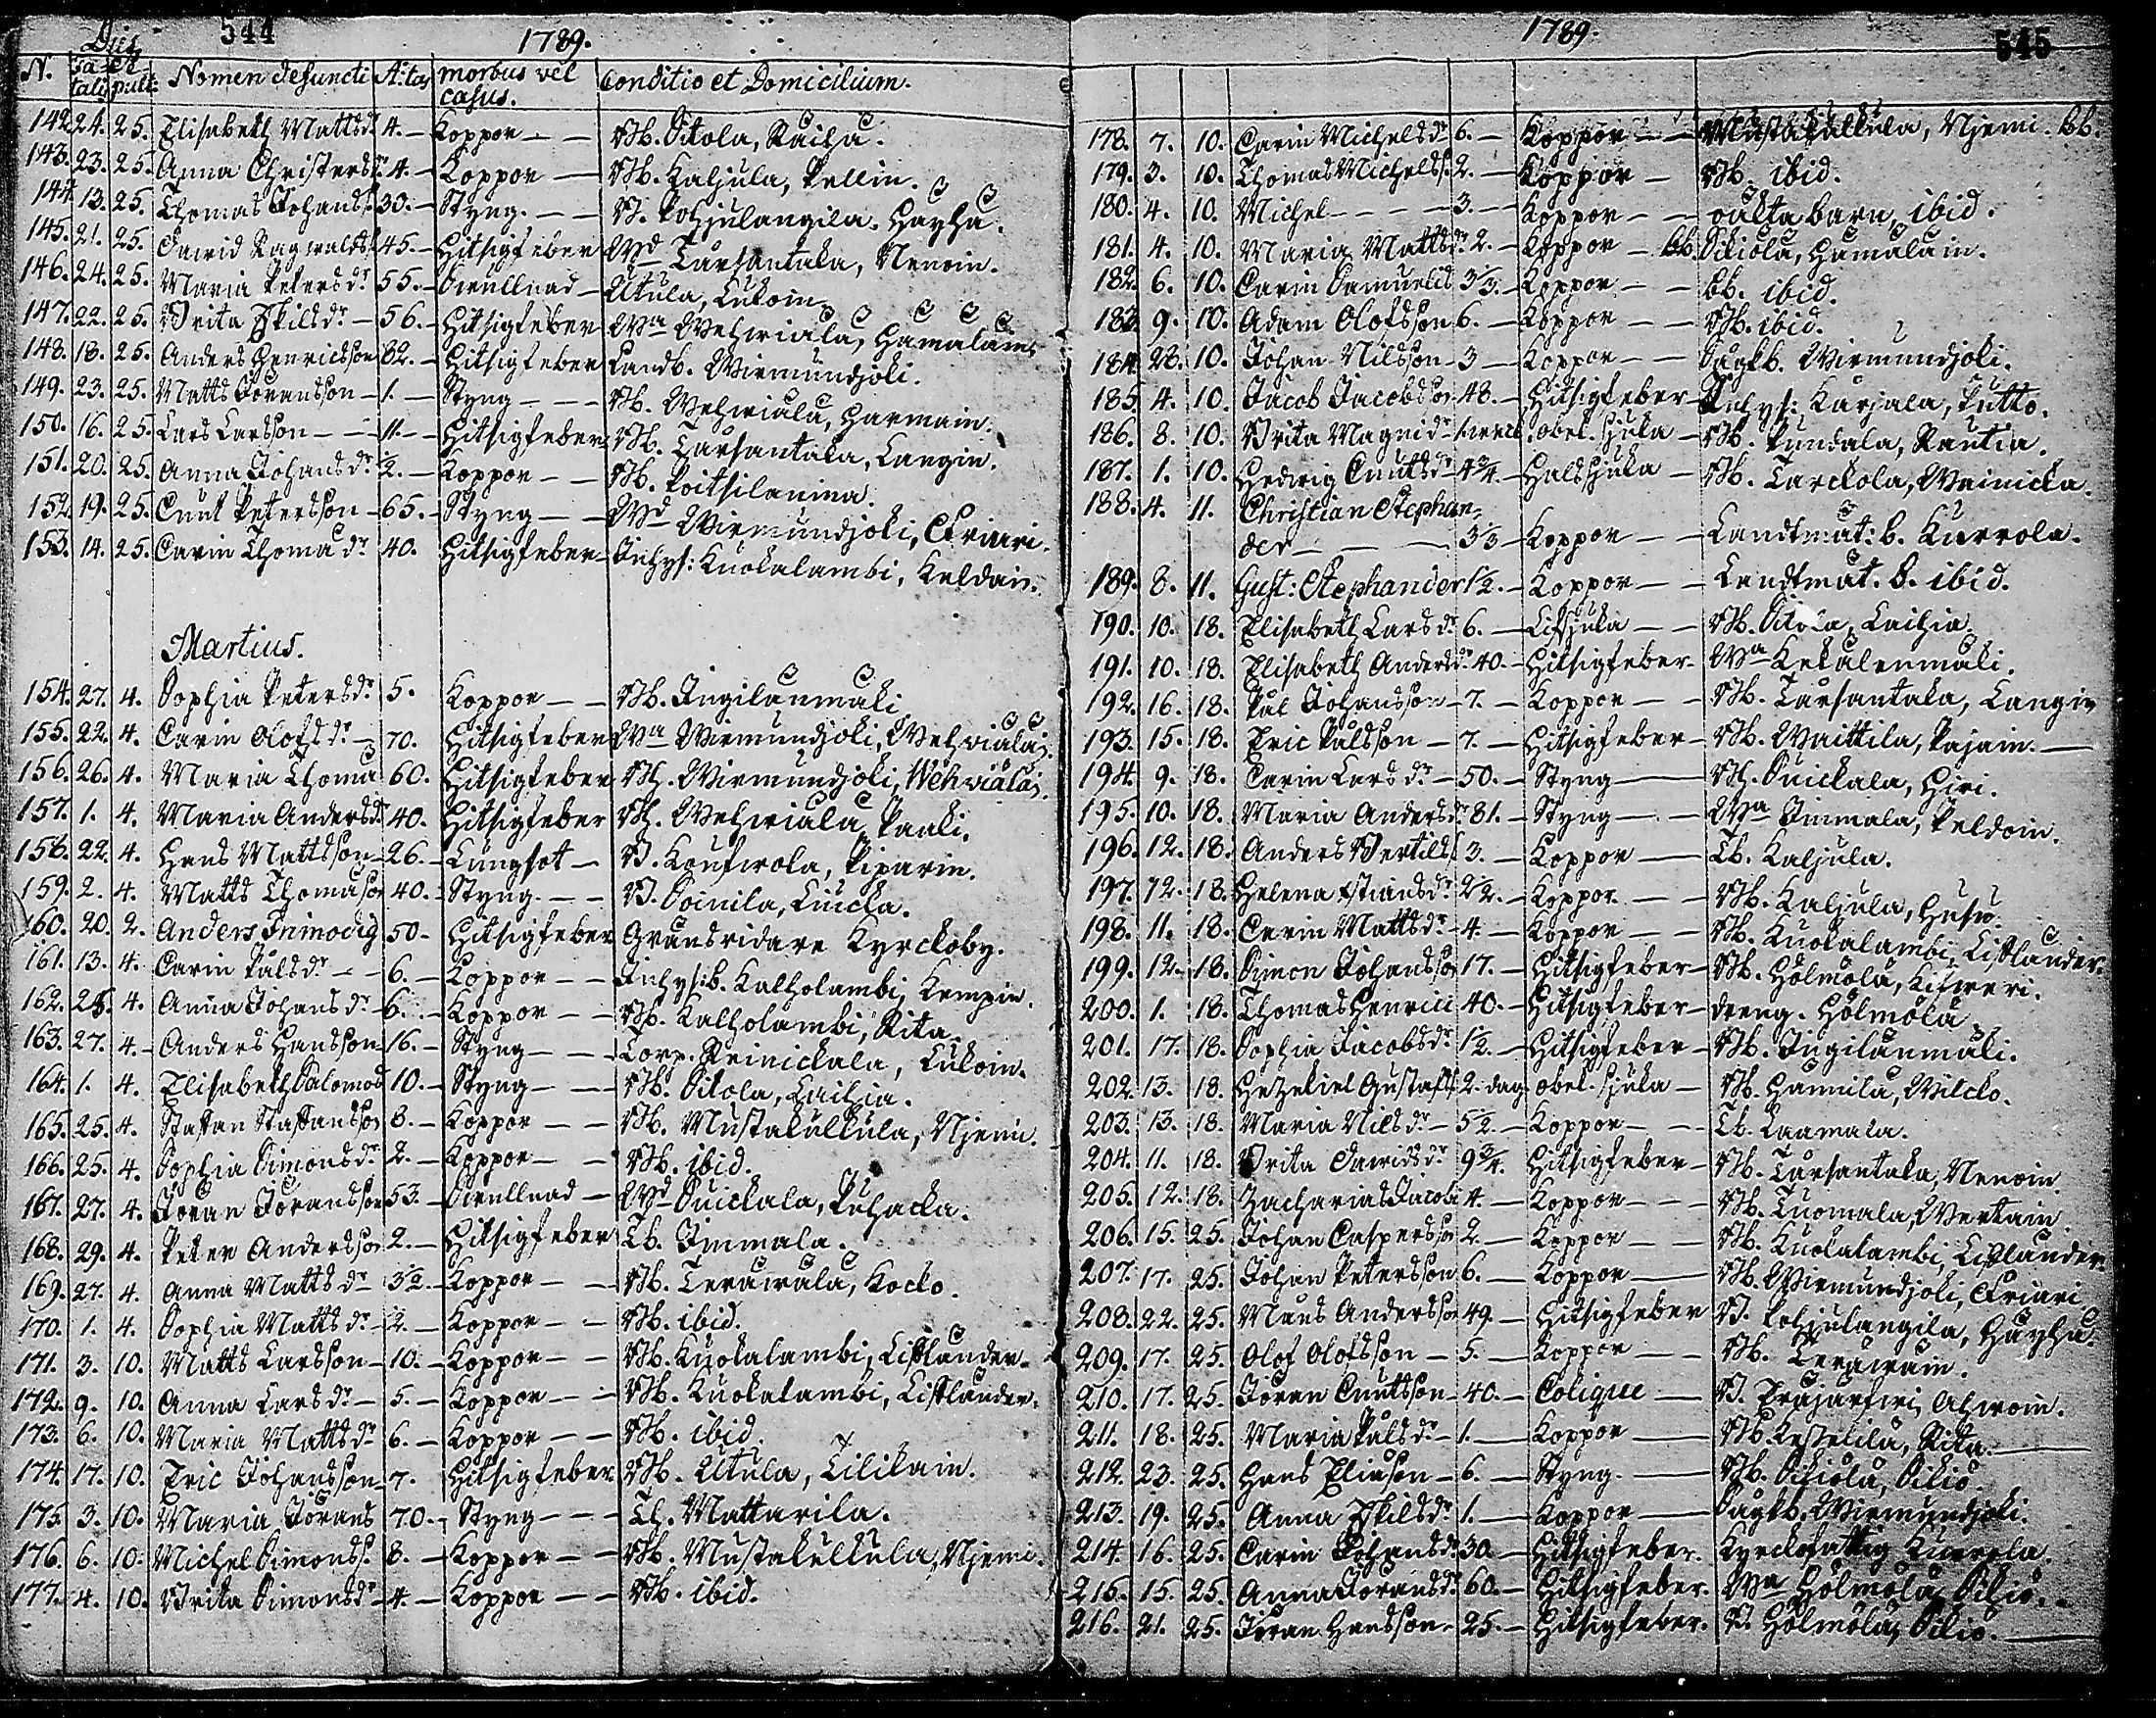 544
1789.
N. Dies fatalis et sepult. Nomen defuncti Ætas morbus vel casus. Conditio et Domicilium.
142. 24. 25. Elisabeth Mattsdr 4. — Koppor — — Bb. Sitola, Raiha.
143. 23. 25. Anna Christersdr 4. — Koppor — Bb. Kaljula, Pellin.
144. 13. 25. Thomas Johands. 30. — Styng. — — B. Pohjulangila, Häyhä.
145. 21. 25. David Ragwalds. 45. — Hitsigfeber Wd Tarsantaka, Nenoin.
146. 24. 25. Maria Petersdr 55. — Swullnad — Utula, Lukoin
147. 22. 25. Brita Eskilsdr — 56. — Hitsigfeber Wa Wehwiälä, Hämäläin.
148. 18. 25. Anders Henricsson 82. — Hitsigfeber Landb. Wirmundjoki.
149. 23. 25. Matts Göransson — 1. — Styng — — — Bb. Wehwialä, Harmain.
150. 16. 25. Lars Larsson — — 11. — Hitsigfeber Bb. Tarsantaka, Langin.
151. 20. 25. Anna Johansdr ½. — Koppor — — Bb. Poitsilanina.
152. 19. 25. Cnut Petersson — 65. — Styng — — Wd Wirmundjoki, Criwari.
153. 14. 25. Carin Thomadr 40. Hitsigfeber — Inhys: Kuokalambi, Keldain.
Martius.
154. 27. 4. Sophia Petersdr 5. Koppor — — Bb. Ingilänmäki
155. 22. 4. Carin Olofsdr — 70. Hitsigfeber Wa Wirmundjoki, Wehwiäläi.
156. 26. 4. Maria Thoma 60. Hitsigfeber Bh. Wirmundjoki, Wehwiäläi.
157. 1. 4. Maria Andersdr 40. Hitsigfeber Bh. Wehwiala, Paaki.
158. 22. 4. Hans Mattsson — 26. — Lungsot — B. Koufwola, Piparin.
159. 2. 4. Matts Thomasson 40. — Styng. — — B. Soinila, Luicka.
160. 20. 2. Anders Frimodig 50 — Hitsigfeber Gränsridare Kyrckoby.
161. 13. 4. Carin Pålsdr — — 6. — Koppor — — Inhys:b. Kalholambi, Kempin.
162. 25. 4. Anna Johansdr — 6. — Koppor — — Bb. Kalholambi, Rita.
163. 27. 4. — Anders Hansson — 16. — Styng — — Torp. Reinickala, Lukoin.
164. 1. 4. Elisabeth Salomos 10. — Styng — — Bb. Sitola, Laihia.
165. 25. 4. Staffan Staffansson 8. — Koppor — — Bb. Mustakulkula, Njemi.
166. 25. 4. Sophia Simonsdr 2. — Koppor — — Bb. ibid.
167. 27. 4. Göran Göransson 53. — Swullnad — Wd Suickala, Puhacka.
168. 29. 4. Peter Andersson 2. — Hitsigfeber Tb. Immala.
169. 27. 4. Anna Mattsdr 3½ — Koppor — — Bb. Teräwälä, Kocko.
170. 1. 4. Sophia Mattsdr — 2. — Koppor — — Bb. ibid.
171. 3. 10. Matts Larsson — 10. — Koppor — — Bb. Kuokalambi, Lifländer.
172. 9. 10. Anna Larsdr — 5. — Koppor — — Bb. Kuokalambi, Lifländer.
173. 6. 10. Maria Mattsdr — 6. — Koppor — — Bb. ibid.
174. 17. 10. Eric Johansson — 7. Hitsigfeber Bb. Utula, Lilikain.
175. 3. 10. Maria Görans 70. — Styng — — Th. Mattarila.
176. 6. 10. Michel Simonds. 8. — Koppor — — Bb. Mustakulkula, Njemi.
177. 4. 10. Brita Simonsdr — 4. — Koppor — — Bb. ibid.
1789.
545
178. 7. 10. Carin Michelsdr 6. — Koppor — — Mustakulkula, Njemi. bb.
179. 3. 10. Thomas Michelss. 2. — Koppor — Bb. ibid.
180. 4. 10. Michel — — — — 3. — Koppor — — oäkta barn, ibid.
181. 4. 10. Maria Mattsdr 2. — Koppor — bb. Sikiölä, Hämäläin.
182. 6. 10. Carin Samuelsd 3⅓. — Koppor — — bb. ibid.
183. 9. 10. Adam Olofsson 6. — Koppor — — Bb. ibid.
184. 28. 10. Johan Nilsson — 3 — Koppor — — Sågkb. Wirmundjoki.
185. 4. 10. Jacob Jacobsson 48. — Hitsigfeber — Inhys: Karjala, Putto.
186. 8. 10. Brita Magnidr — 1. obek. sjuka — Bb. Pundala, Rautia.
187. 1. 10. Hedwig Cnutsdr 4¾ — Halssjuka — Bb. Tarckola, Wainicka.
188. 4. 11. Christian Stephan-
der — — — 3⅓ — Koppor — — Landtmät: b. Kurrola.
189. 8. 11. Gust: Stephander 1½. — Koppor — — Landtmät. B. ibid.
190. 10. 18. Elisabeth Larsdr 6. — Lifsjuka — — Bb. Sitola, Laihia.
191. 10. 18. Elisabeth Andersdr 40. — Hitsigfeber — Wa Kekälenmäki.
192. 16. 18. Pål Johansson — 7. — Koppor — — Bb. Tarsantaka, Langin
193. 15. 18. Eric Pålsson — 7. — Hitsigfeber — Bb. Waittila, Pajain. —
194. 9. 18. Carin Larsdr — 50. — Styng — Bh. Suickala, Hiri.
195. 10. 18. Maria Andersdr 81. — Styng — — Wa Immala, Peldoin.
196. 12. 18. Anders Bertilss. 3. — Koppor — Tb. Kaljula.
197. 12. 18. Helena Stiansdr 2½. — Koppor. — — Bb. Kaljula, Husu.
198. 11. 18. Carin Mattsdr — 4. — Koppor — — Bb. Kuokalambi, Lifländer.
199. 12. 18. Simon Johansson 17. — Hitsigfeber — Bb. Hölmölä, Kifweri.
200. 1. 18. Thomas Henrici 40. — Hitsigfeber — dreng. Hölmölä
201. 17. 18. Sophia Jacobsdr 1½. — Hitsigfeber — Bb. Ingilänmäki.
202. 13. 18. Hezekiel Gustafss 2. dag. obek. sjuka — Bb. Hannila, Wilcko.
203. 13. 18. Maria Nilsdr — 5½. — Koppor — — Tb. Laamala.
204. 11. 18. Brita Davidsdr 9¾. Hitsigfeber — Bb. Tarsantaka, Nenoin.
205. 12. 18. Zacharias Jacobi 4. — Koppor — — Bb. Tuomala, Wertain.
206. 15. 25. Johan Caspersson 2. — Koppor — — Bb. Kuokalambi, Lifländer.
207. 17. 25. Johan Petersson 6. — Koppor — Bb. Wirmundjoki, Criari
208. 22. 25. Måns Andersson 49. — Hitsigfeber B. Pohjulangila, Häyhä.
209. 17. 25. Olof Olofsson — 5. — Koppor — — Bb. Teräwäin.
210. 17. 25. Göran Cnutsson — 40. — Colique — B. Eräjärfwi, Ahwoin.
211. 18. 25. Maria Pålsdr — 1. — Koppor — Bb. Kesselilä, Rita. —
212. 23. 25. Hans Eliasson — 6. — Styng. — Bb. Sikiölä, Sikiö.
213. 19. 25. Anna Eskilsdr 1. — Koppor — Sågkb. Wirmundjoki.
214. 16. 25. Carin Johansdr 30 — Hitsigfeber. Kyrckofattig Kurrola.
215. 15. 25. Anna Göransdr 60. — Hitsigfeber. Wa Hölmölä, Sikiö.
216. 21. 25. Göran Hansson — 25. — Hitsigfeber. B. Hölmölä, Sikiö. —